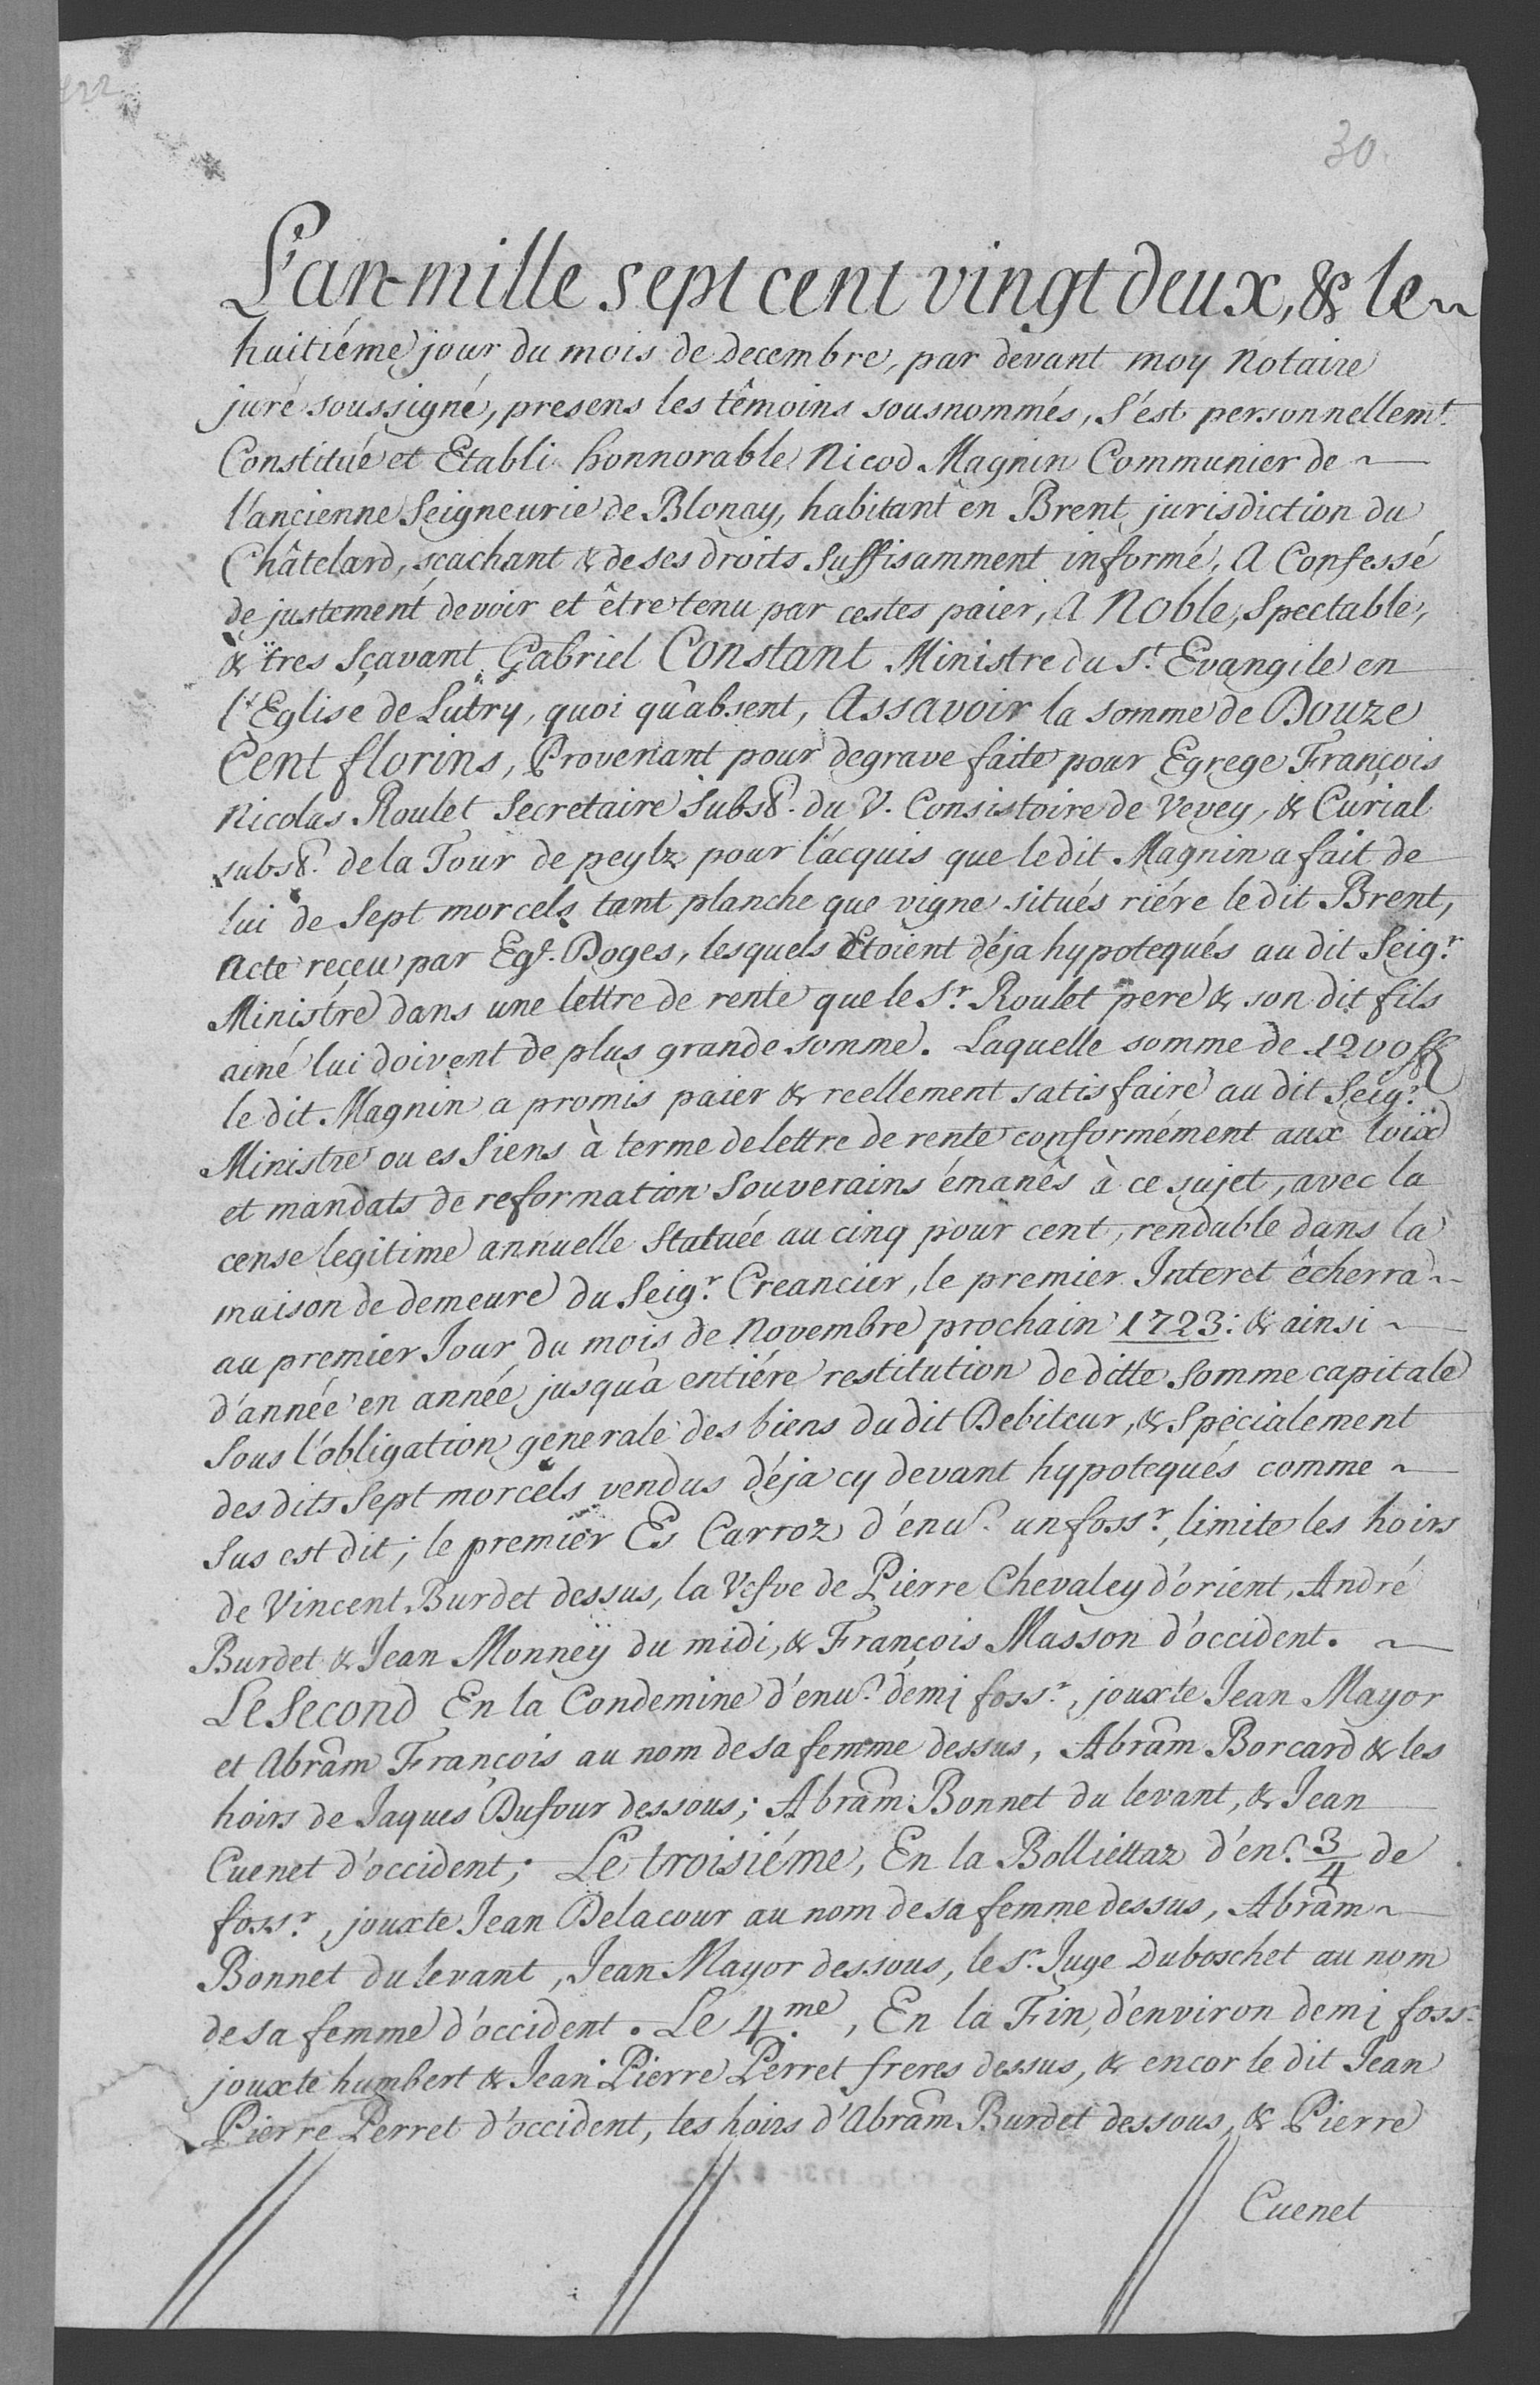 30.
L'an mille sept cent vingt deux, & le
huitiéme jour du mois de decembre, par devant moy Notaire
juré soussigné, presens les têmoins sousnommés, s'est personnellemt.
Constitué et Etabli honnorable Nicod Magnin Communier de
l'ancienne Seigneurie de Blonay, habitant en Brent jurisdiction du
Châtelard, sçachant & de ses droits suffisamment informé, A Confessé
de justement devoir et être tenu par cestes paier, A Noble, Spectable,
& tres Sçavant Gabriel Constant Ministre du St. Evangile en
l'Eglise de Lutry, quoi qu'absent, Assavoir la somme de Douze
Cent florins, Provenant pour degrave faite pour Egrege François
Nicolas Roulet Secretaire Subst. du V. Consistoire de Vevey, & Curial
subst. de la Tour de peylz pour l'acquis que le dit Magnin a fait de
lui de Sept morcels tant planche que vigne situés riére le dit Brent,
Acte reçeu par Ege. Doges, lesquels étoient déja hypotequés au dit Seigr.
Ministre dans une lettre de rente que le Sr. Roulet pere & son dit fils
ainé lui doivent de plus grande somme. Laquelle somme de 1200 ff
le dit Magnin a promis paier & reellement satisfaire au dit Seigr.
Ministre ou es Siens à terme de lettre de rente conformément aux loix
et mandats de reformation Souverains émanés à ce sujet, avec la
cense legitime annuelle Statuée au cinq pour cent, rendable dans la
maison de demeure du Seigr. Creancier, le premier Interet êcherra
au premier Jour du mois de Novembre prochain 1723: & ainsi
d'année en année jusqu'à entiére restitution de ditte Somme capitale
Sous l'obligation generale des biens du dit Debiteur, & Spécialement
des dits Sept morcels vendus déja cy devant hypotequés comme
Sus est dit; le premier Es Carroz d'env. un fossr. limite les hoirs
de Vincent Burdet dessus, la Vefve de Pierre Chevaley d'orient, André
Burdet & Jean Monneÿ du midi, & François Masson d'occident.
Le Second En la Condemine d'env. demi fossr., jouxte Jean Mayor
et Abram François au nom de sa femme dessus, Abram Borcard & les
hoirs de Jaques Dufour dessous; Abram Bonnet du levant, & Jean
Cuenet d'occident; Le troisiéme, En la Bolliettaz d'en. 3/4 de
fossr., jouxte Jean Delacour au nom de sa femme dessus, Abram
Bonnet du levant, Jean Mayor dessous, le Sr. Juge Duboschet au nom
de sa femme d'occident. Le 4.me, En la Fin, d'environ demi foss.
jouxte humbert & Jean Pierre Perret freres dessus, & encor le dit Jean
Pierre Perret d'occident, les hoirs d'Abram Burdet dessous, & Pierre
Cuenet